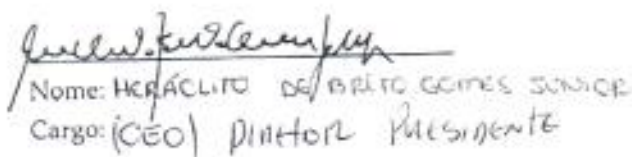 Nome: HERÁCLITO DE BRITO GOMES JUNIOR
Cargo: (CEO) DIRETOR PRESIDENTE